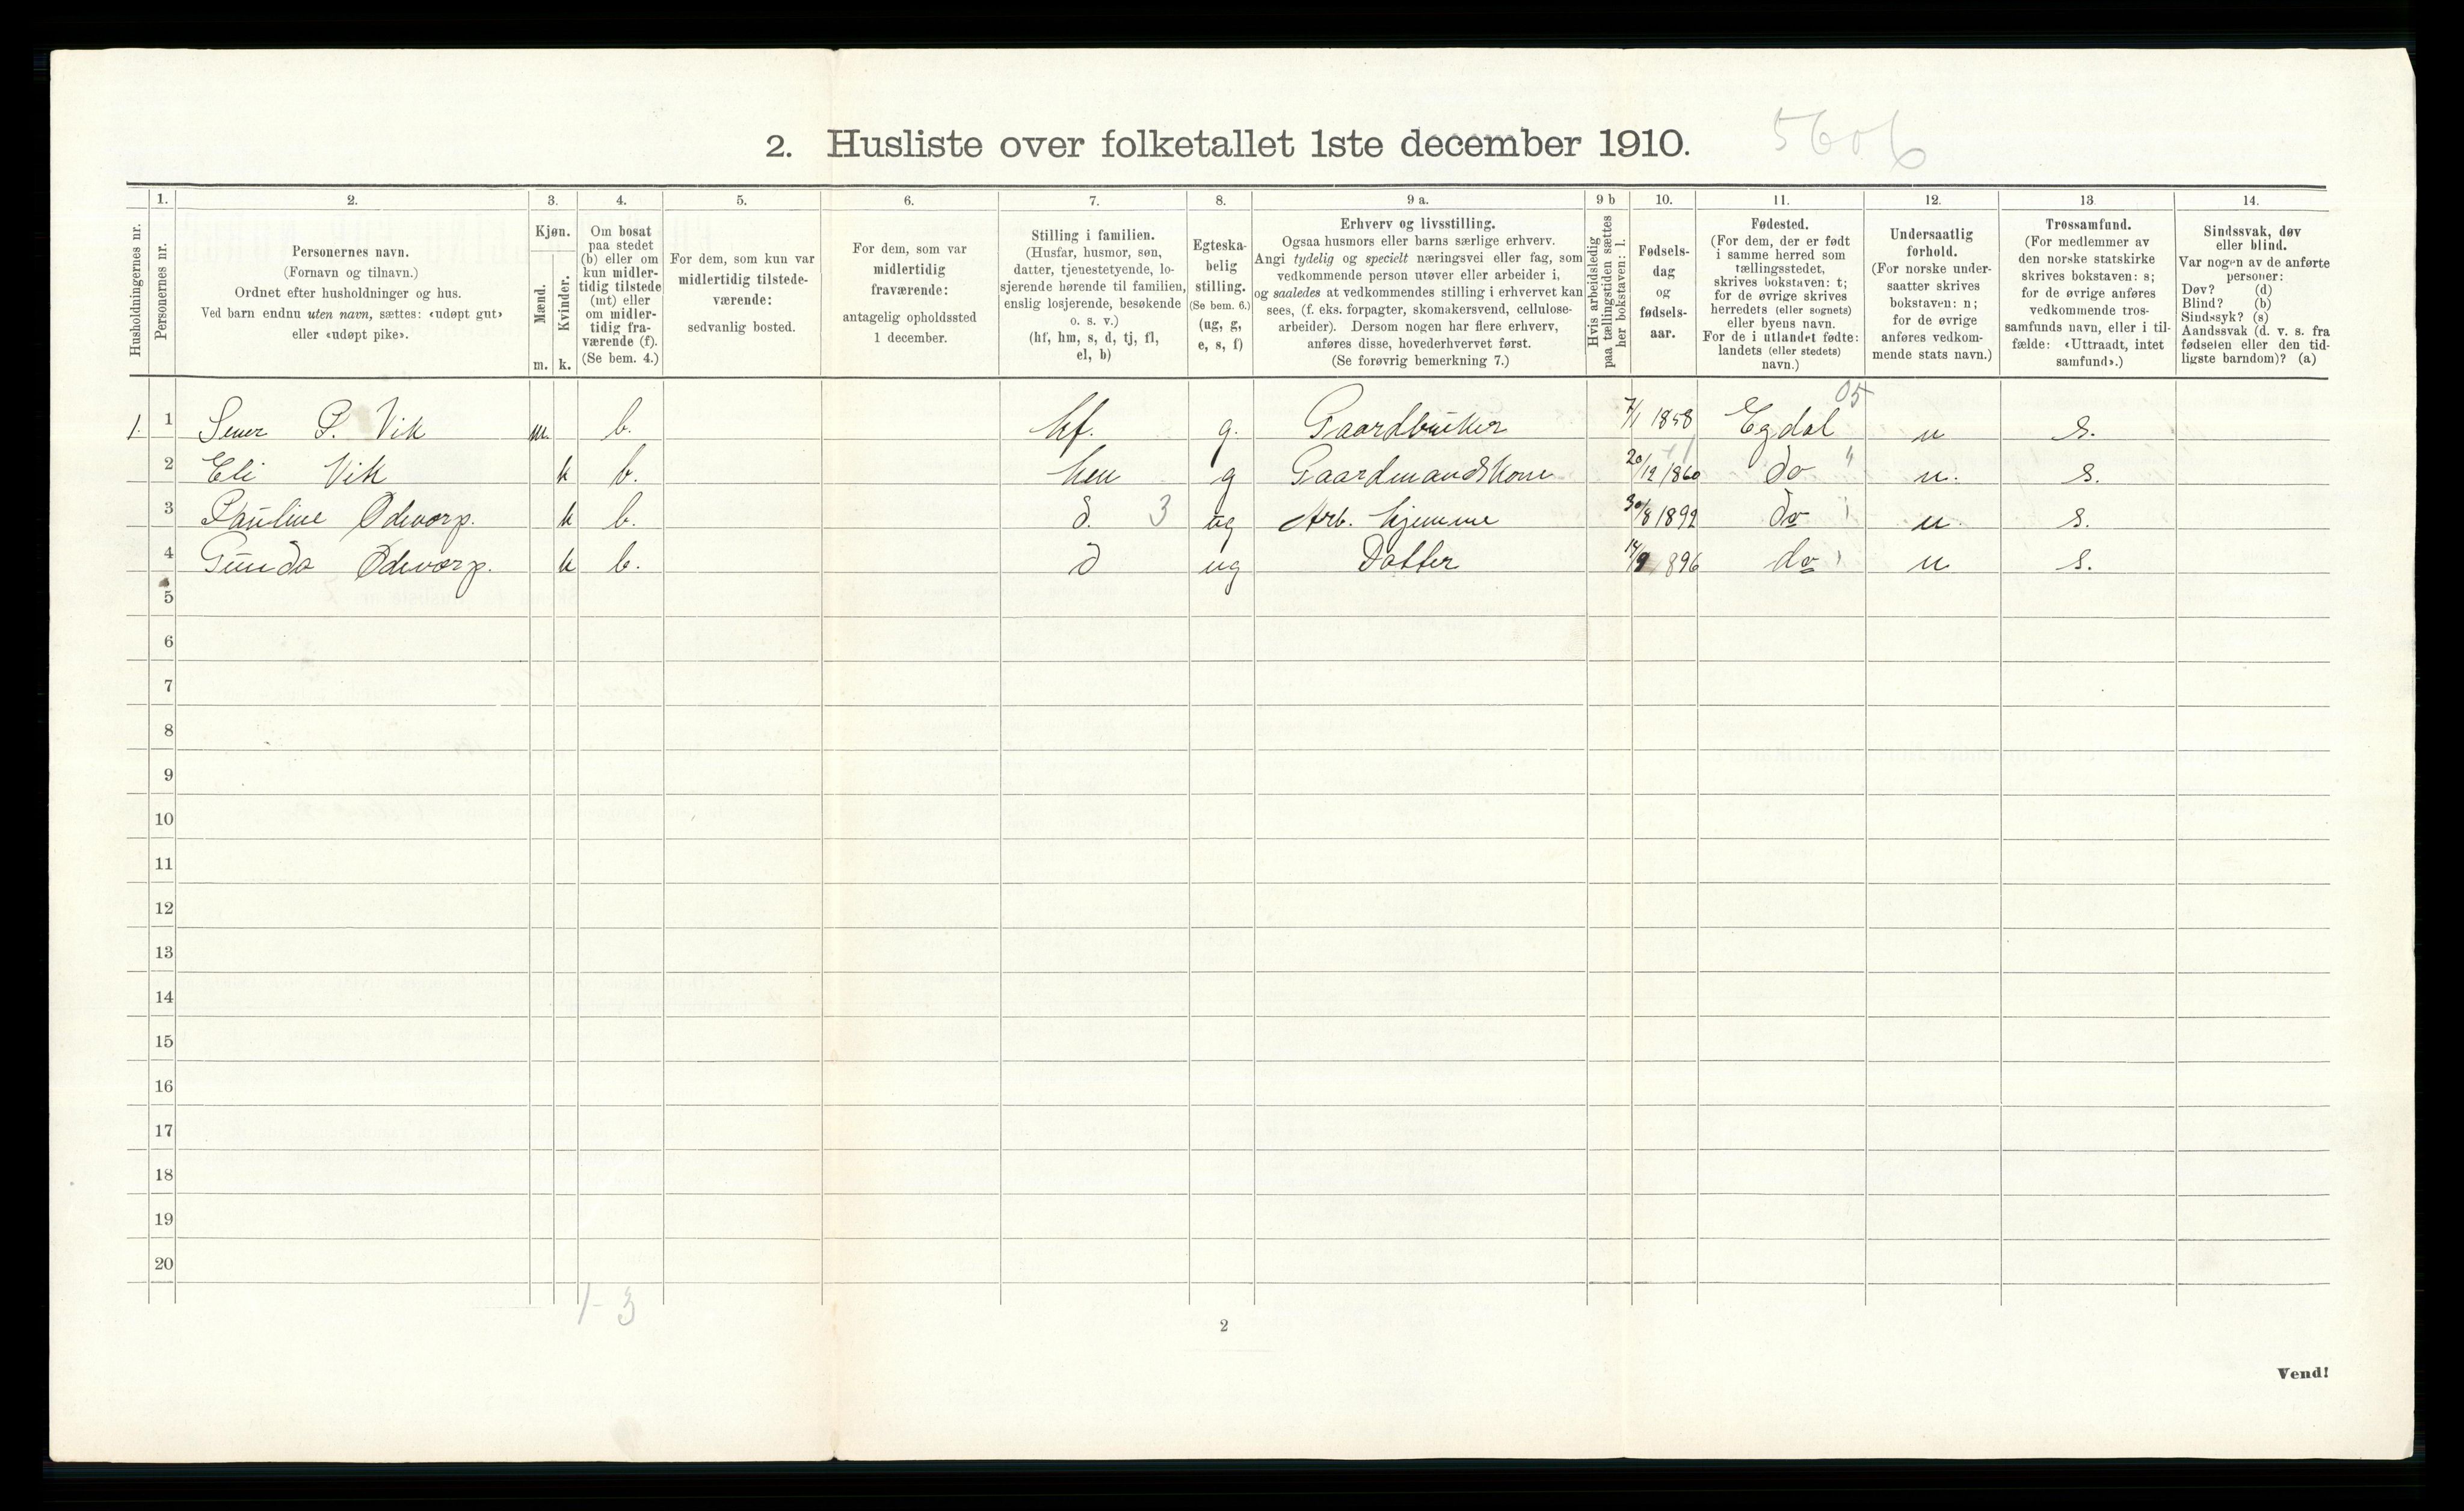 2. Husliste over folketallet 1ste december 1910. 5606
1. 2. 3. 4. 5. 6. 7. 8. 9 a. 9 b 10. 11. 12. 13. 14.
Husholdningernes nr.
Personernes nr.
Personernes navn.
(Fornavn og tilnavn.)
Ordnet efter husholdninger og hus.
Ved barn endnu uten navn, sættes: «udøpt gut»
eller «udøpt pike».
Kjøn.
Mænd.
Kvinder.
m. k.
Om bosat
paa stedet
(b) eller om
kun midler-
tidig tilstede
(mt) eller
om midler-
tidig fra-
værende (f).
(Se bem. 4.)
For dem, som kun var
midlertidig tilstede-
værende:
sedvanlig bosted.
For dem, som var
midlertidig
fraværende:
antagelig opholdssted
1 december.
Stilling i familien.
(Husfar, husmor, søn,
datter, tjenestetyende, lo-
sjerende hørende til familien,
enslig losjerende, besøkende
o. s. v.)
(hf, hm, s, d, tj, fl,
el, b)
Egteska-
belig
stilling.
(Se bem. 6.)
(ug, g,
e, s, f)
Erhverv og livsstilling.
Ogsaa husmors eller barns særlige erhverv.
Angi tydelig og specielt næringsvei eller fag, som
vedkommende person utøver eller arbeider i,
og saaledes at vedkommendes stilling i erhvervet kan
sees, (f. eks. forpagter, skomakersvend, cellulose-
arbeider). Dersom nogen har flere erhverv,
anføres disse, hovederhvervet først.
(Se forøvrig bemerkning 7.)
Hvis arbeidsledig
paa tællingstiden sættes
her bokstaven: l.
Fødsels-
dag
og
fødsels-
aar.
Fødested.
(For dem, der er født
i samme herred som
tællingsstedet,
skrives bokstaven: t;
for de øvrige skrives
herredets (eller sognets)
eller byens navn.
For de i utlandet fødte:
landets (eller stedets)
navn.)
Undersaatlig
forhold.
(For norske under-
saatter skrives
bokstaven: n;
for de øvrige
anføres vedkom-
mende stats navn.)
Trossamfund.
(For medlemmer av
den norske statskirke
skrives bokstaven: s;
for de øvrige anføres
vedkommende tros-
samfunds navn, eller i til-
fælde: «Uttraadt, intet
samfund».)
Sindssvak, døv
eller blind.
Var nogen av de anførte
personer:
Døv? (d)
Blind? (b)
Sindssyk? (s)
Aandssvak (d. v. s. fra
fødselen eller den tid-
ligste barndom)? (a)
05
1. 1 P. Vik m. b. hf. g. Gaardbruker 7/1 1858 Egdal n s.
2 Eli Vik k b. hm g Gaardmandskone 20/12 1860 do " n. s.
3 Pauline Ødevarp. k b. d. 3 ug Arb. hjemme 30/8 1892 do n s.
4 Gunda Ødevarp. k b. d ug Datter 14/9 1896 do n s.
5
6
7
8
9
10
11
12
13
14
15
16
17
18
19
20
1-3
2
Vend!